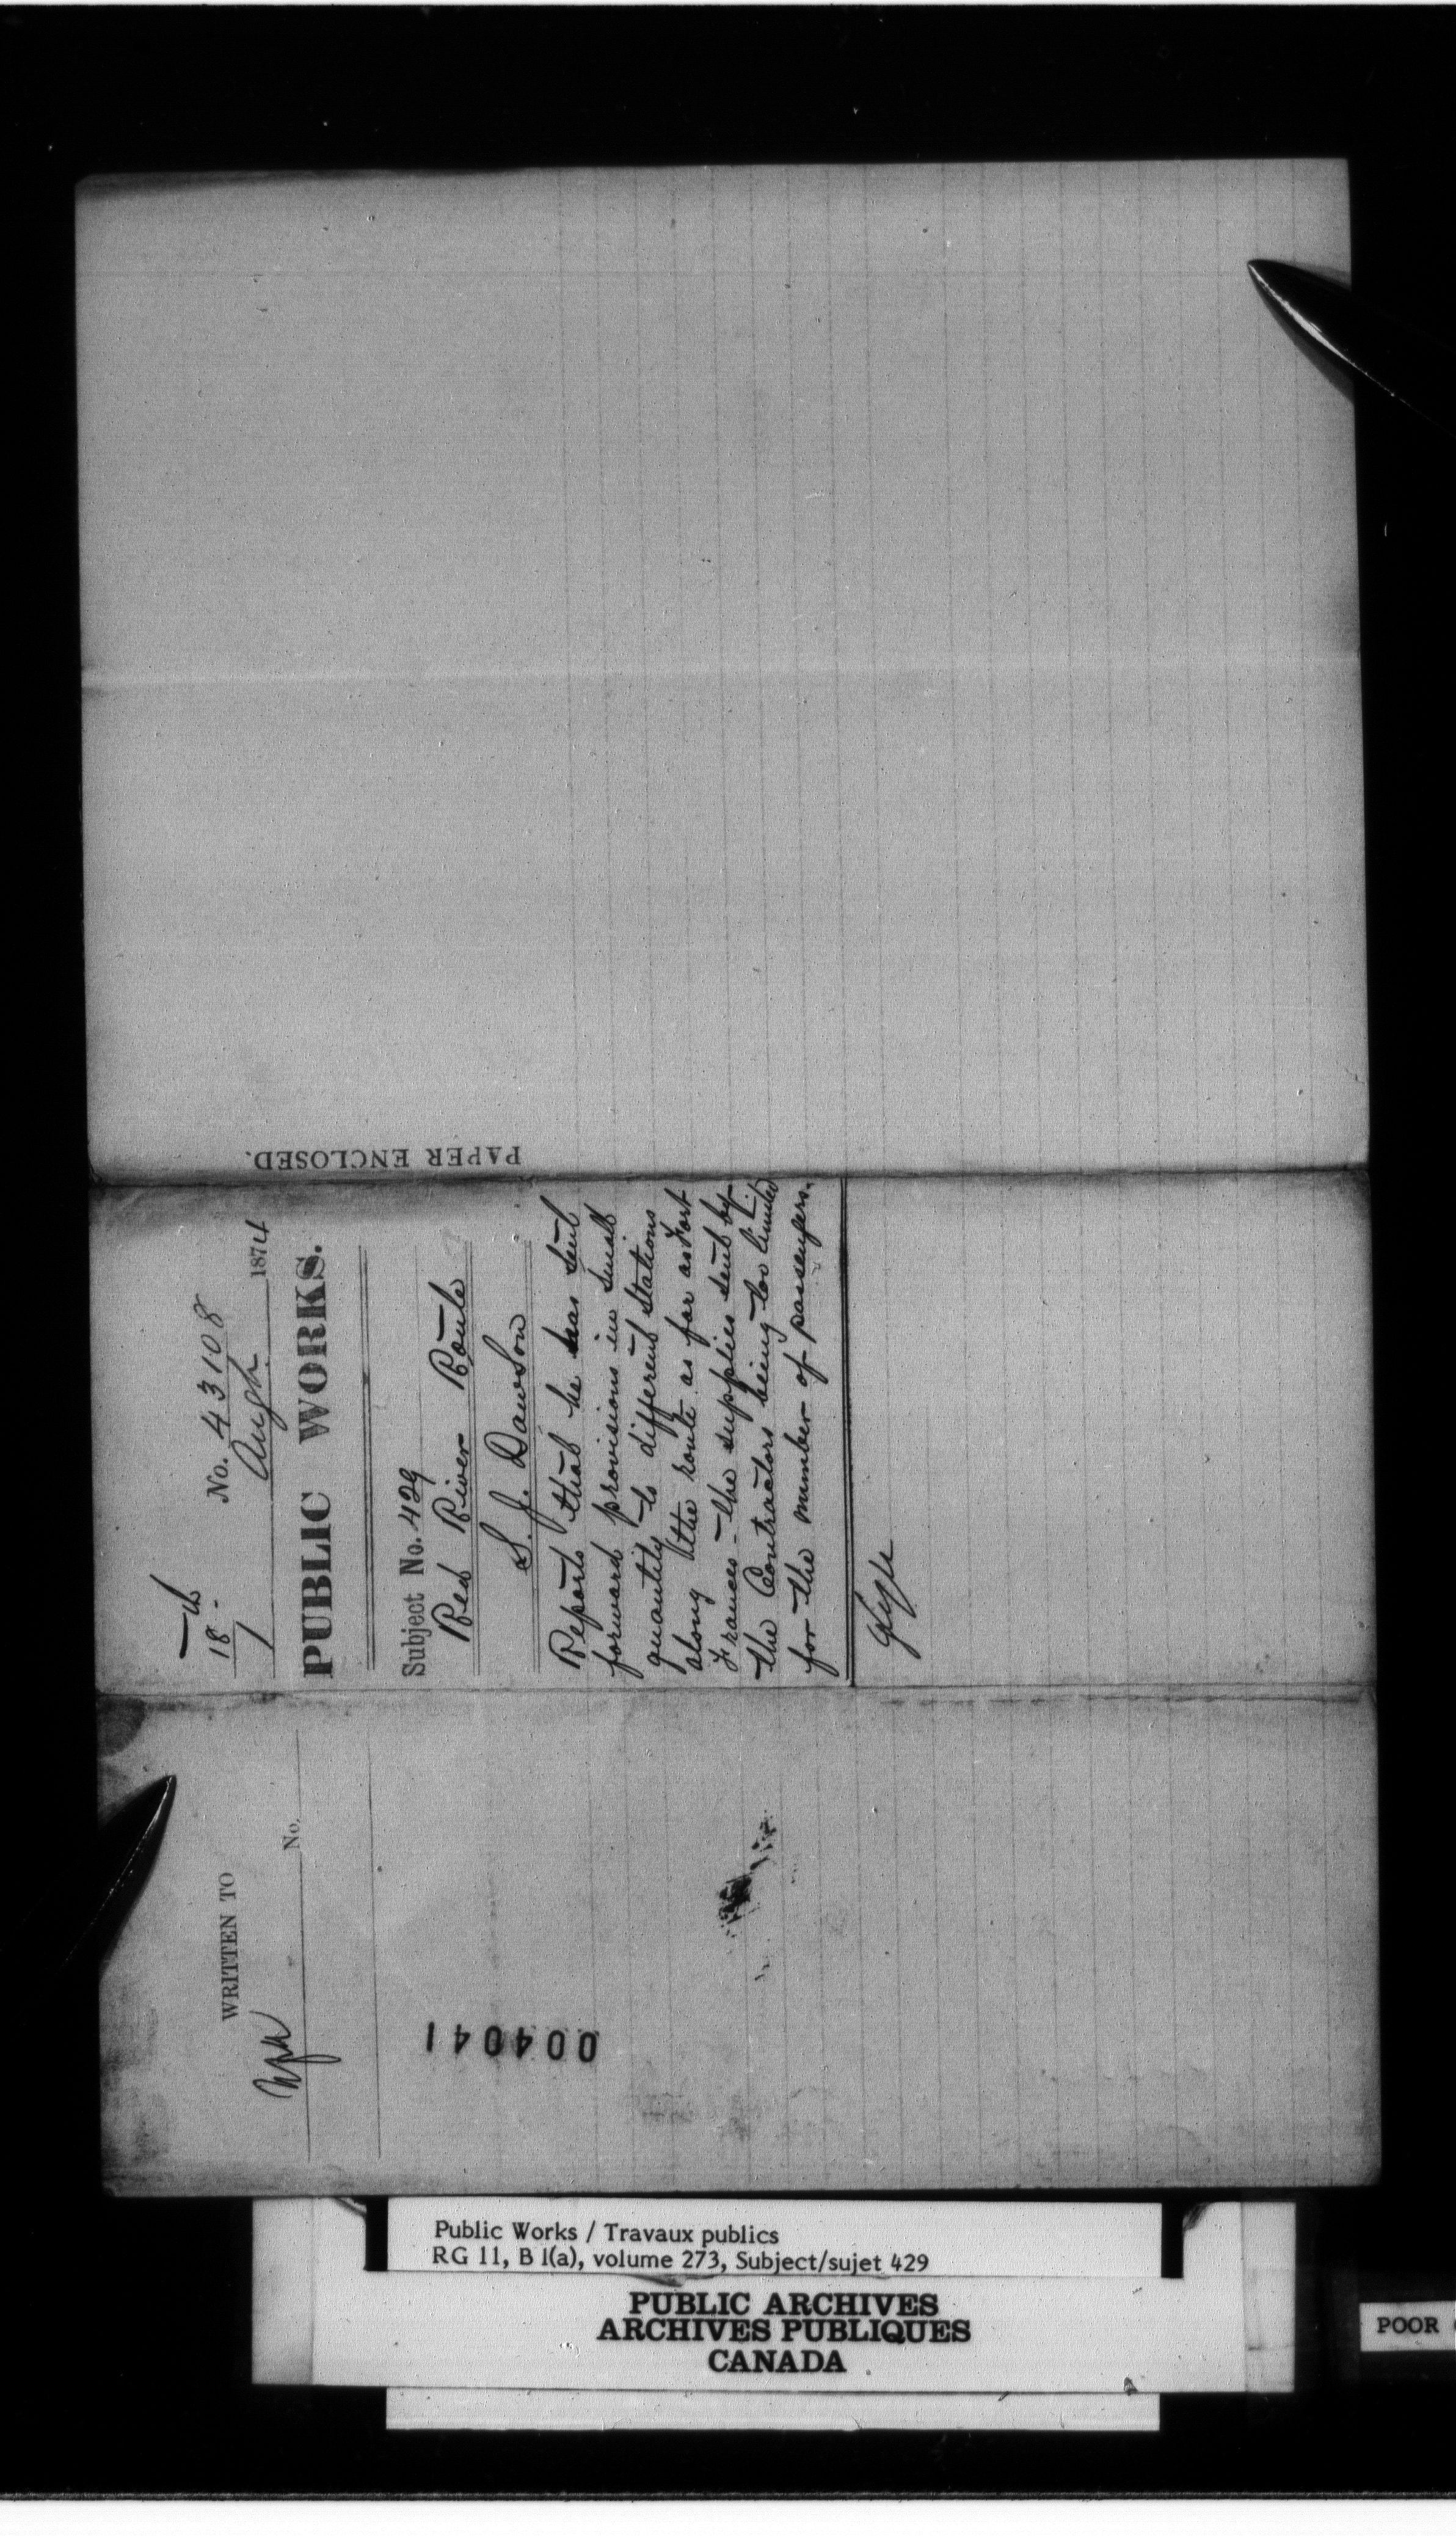 18-
1
No. 43108
Augt. 1874
PUBLIC WORKS.
Subject No. 429
Red River Route
S. J. Dawson
Reports that he has sent
forward provisions in small
quantity to different Stations
along the route as far as Fort
Frances - the supplies sent by
the Contractors being too limited
for the number of passengers.
PAPER ENCLOSED.
WRITTEN TO
No.
004041
Public Works / Travaux publics
RG 11, B 1(a), volume 273, Subject/sujet 429
PUBLIC ARCHIVES
ARCHIVES PUBLIQUES
CANADA
POOR